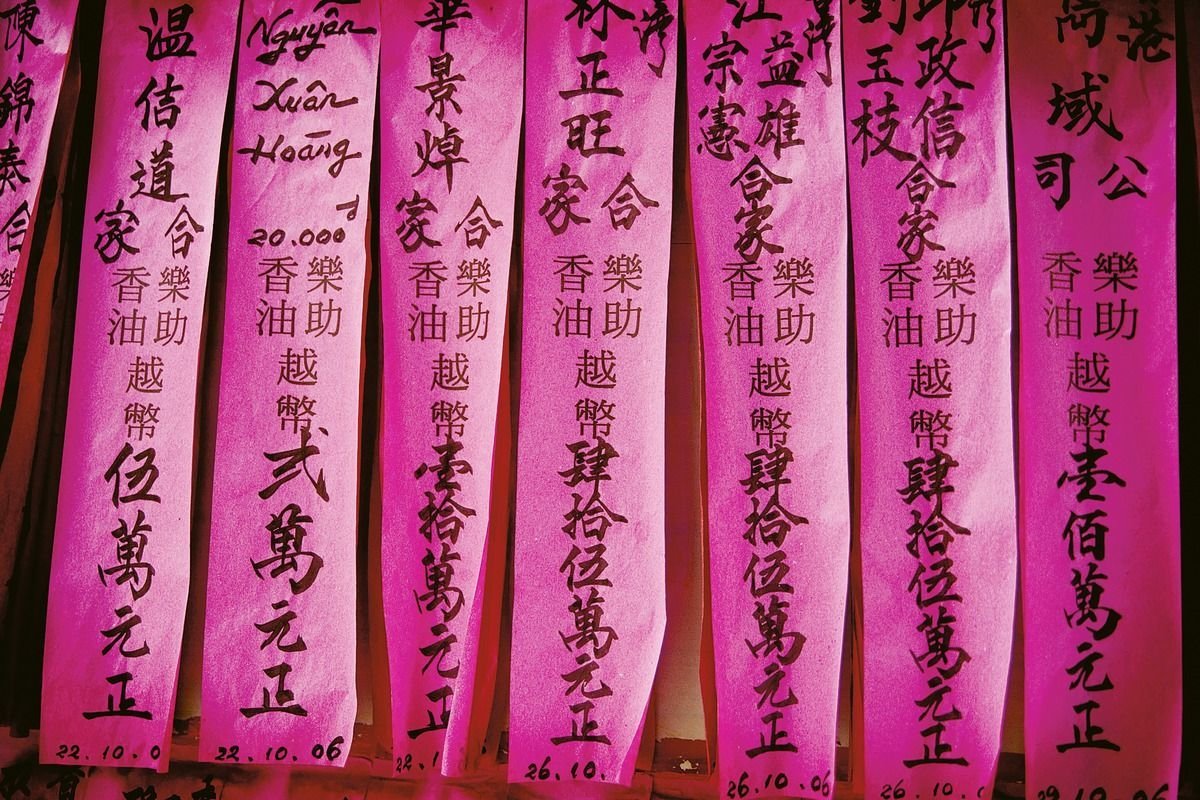 陳錦
合
溫佶道
合家
樂助
香油
越幣
伍萬元正
22.10.0
Nguyên
Xuân
Hoāng
20.000đ
樂助
香油
越幣
弍萬元正
22.10.06
華景焯
合家
樂助
香油
越幣
壹拾萬元正
22.1
灣
林正旺
合家
樂助
香油
越幣
肆拾伍萬元正
26.10.
灣
江益雄
宗憲
合家
樂助
香油
越幣
肆拾伍萬元正
26.10.06
灣
邱政信
劉玉枝
合家
樂助
香油
越幣
肆拾伍萬元正
26.10.
港
域
公司
樂助
香油
越幣
壹佰萬元正
29.10.06